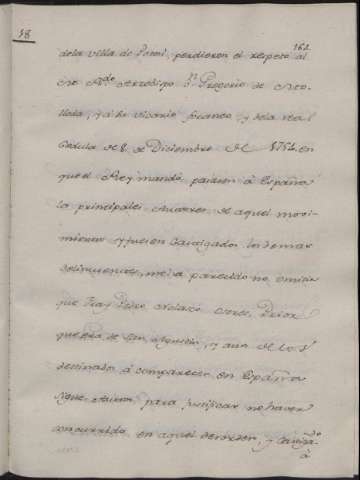 58
162
de la villa de perdieron el respeto al
Sr. Arzobispo Dn. Gregorio de
y a su Vicario foraneo, y de la real
Cedula de 8 de Diciembre de en
que el Rey mandó, pasasen á España
los principales Autores de aquel movi-
miento y fuesen castigados los demas
delinquentes, me á parecido no omitir
que Fray Pedro Nolasco Prior
que era de San Agustin, y aun de los
destinados á comparecer en España
para justificar no haver
concurrido en aquel desorden, y
á